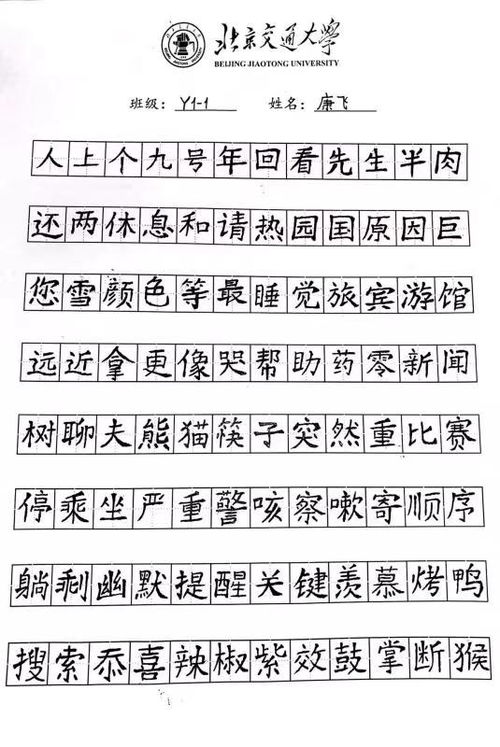 北京交通大学
BEIJING JIAOTONG UNIVERSITY
班级: Y1-1 姓名: 康飞
人上个九号年回看先生半肉
还两休息和请热园国原因巨
您雪颜色等最睡觉旅宾游馆
远近拿更像哭帮助药零新闻
树聊夫熊猫筷子突然重比赛
停乘坐严重警咳察嗽寄顺序
躺剩幽默提醒关键羡慕烤鸭
搜索恭喜辣椒紫效鼓掌断猴